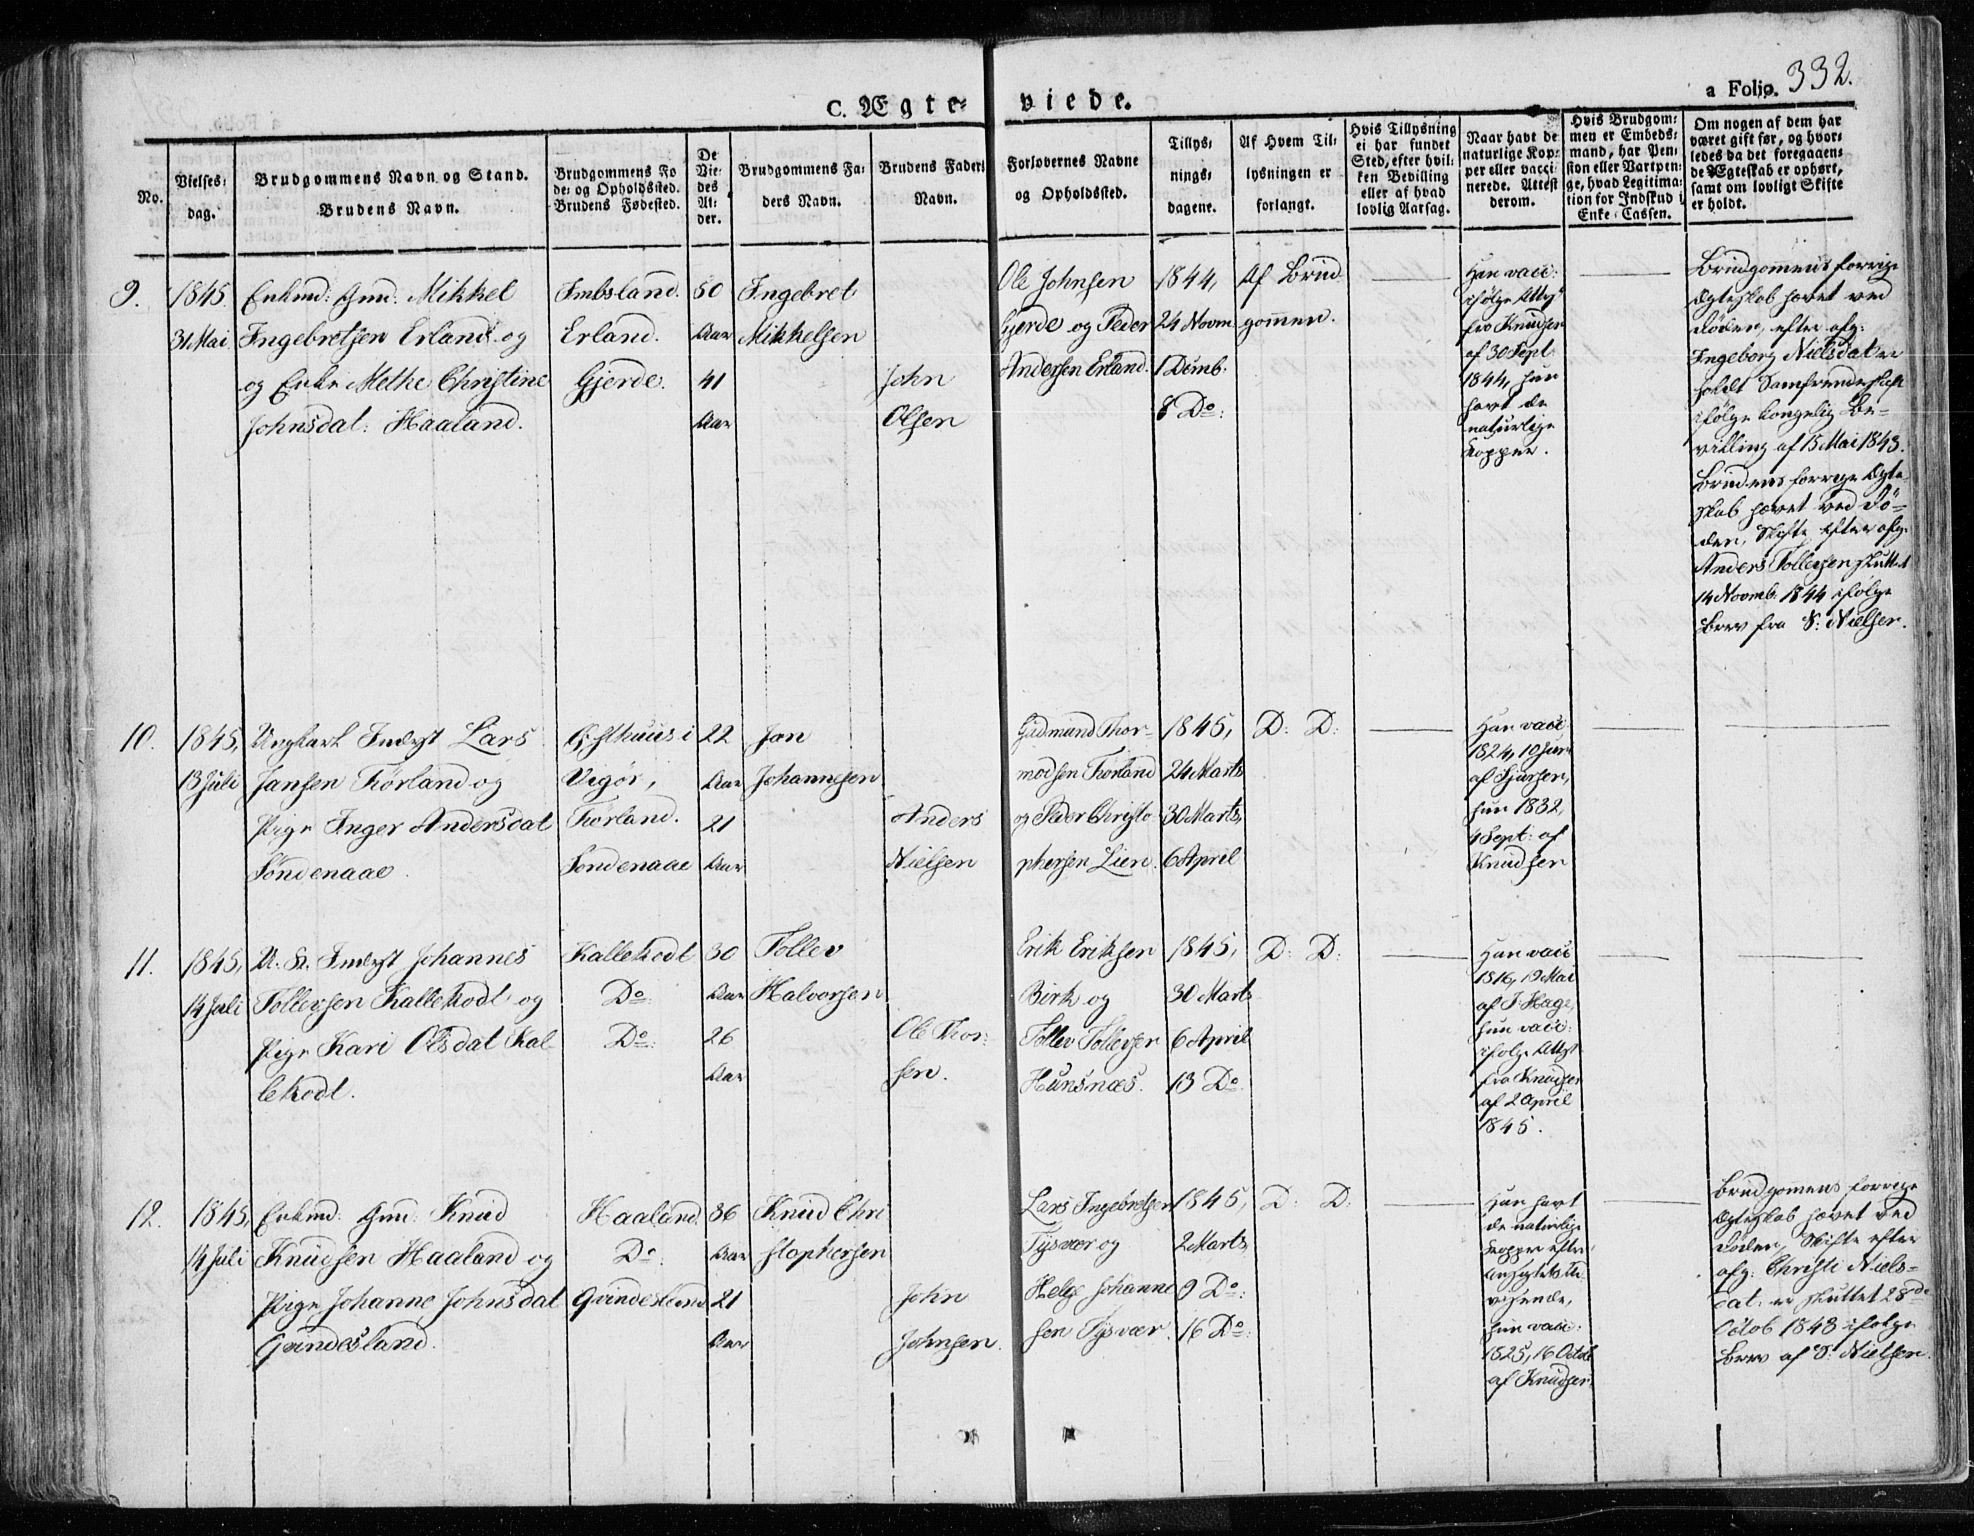 332.
a Folio.
C. Ægte-viede.
No.
Vielses-
dag.
Brudgommens Navn og Stand.
Brudens Navn.
Brudgommens Fø
de- og Opholdssted.
Brudens Fødested.
De
Vie-
des
Al-
der.
Brudgommens Fa-
ders Navn.
Brudens Faders
Navn.
Forlovernes Navne
og Opholdssted.
Tillys-
nings-
dagene.
Af Hvem Til-
lysningen er
forlangt.
Hvis Tillysning
ei har fundet
Sted, efter hvil-
ken Bevilling
eller af hvad
lovlig Aarsag.
Naar havt de
naturlige Kop-
per eller vacci-
nerede. Attest
derom.
Hvis Brudgom-
men er Embeds-
mand, har Pen-
sion eller Vartpen-
ge, hvad Legitima-
tion for Indskud i
Enke-Cassen.
Om nogen af dem har
været gift før, og hvor-
ledes da det foregaaen-
de Ægteskab er ophørt,
samt om lovligt Skifte
er holdt.
9.
1845
31 Mai
Enkmd: Gmd: Mikkel
Ingebretsen Erland og
og Enke Methe Christine
Johnsdat: Haaland.
Imbsland.
Erland.
Gjerde.
50
Aar
41
Aar
Ingebret
Mikkelsen
John
Olsen
Ole Johnsen
Gjerde og Peder
Andersen Erland.
1844,
24 Novm.
1 Decmb.
8 Do:
Af Brud
gommen.
Han vacc:
ifølge Attest
fra Knudsen
af 30 Sept.
1844, hun
havt de
naturlige
Kopper.
Brudgommens forrige
Ægteskab hævet ved
Døden, efter afg:
Ingeborg Nielsdat er
holdt Samfrendeskifte
ifølge kongelig Be-
villing af 15 Mai 1843.
Brudens forrige Ægte-
skab hævet ved Dö-
den, Skifte efter afg.
Anders Tollefsen sluttet
14 Novmb. 1844 ifølge
Brev fra S: Nielsen.
10.
1845,
13 Juli
Ungkarl Inderst Lars
Jansen Førland og
Pige Inger Andersdat
Søndenaae.
i
Vigør,
Førland.
Søndenaae
22
Aar
21
Aar
Jan
Johannesen
Anders
Nielsen
Gudmund Thor-
modsen Førland
og Peder Christo
phersen Lien.
1845,
24 Marts
30 Marts,
6 April
D: D:
Han vacc
1824, 19 Juni
af
hun 1832,
4 Sept: af
Knudsen
11.
1845,
14 Juli
U. K. Inderst Johannes
Tollevsen Kallekodt og
Pige Kari Olsdat Kal-
lekodt.
Kallekodt
Do:
Do:
30
Aar
26
Aar
Tollev
Halvorsen
Ole Thor-
sen.
Erik Eriksen
Birk og
Tollev Tollevsen
Hunsnæs.
1845,
30 Marts
6 April
13 Do.
D: D:
Han vacc
1816, 19 Mai
af J. Hage,
hun vacc:
ifølge Attest
fra Knudsen
af 2 April
1845.
12.
1845,
14 Juli
Enkmd: Gmd: Knud
Knudsen Haaland og
Pige Johanne Johnsdat
Qvindesland.
Haaland.
Do
Qvindesland
36
Aar
21
Aar
Knud Chri
stophersen
John
Johnsen.
Lars Ingebretsen
Tysvær og
Helge Johanne
sen Tysvær.
1845,
2 Marts
9 Do:
16 Do:
D: D:
Han havt
de naturlige
Kopper efter
Ansigtets Ud
visende,
hun vacc:
1825, 16 Octob
af Knudsen.
Brudgommens forrige
Ægteskab hævet ved
Døden, Skifte efter
afg: Christi Niels-
dat: er sluttet 28de
Octob 1843 ifølge
Brev af S: Nielsen.